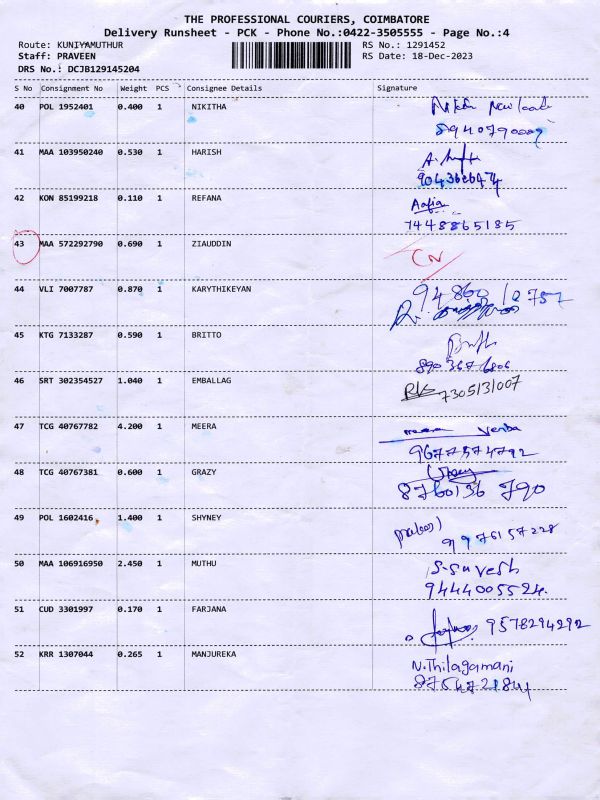 THE PROFESSIONAL COURIERS, COIMBATORE
Delivery Runsheet - PCK - Phone No.:0422-3505555 - Page No.:4
Route: KUNIYAMUTHUR RS No.: 1291452
Staff: PRAVEEN RS Date: 18-Dec-2023
DRS No.: DCJB129145204
S No Consignment No Weight PCS Consignee Details Signature
40 POL 1952401 0.400 1 NIKITHA
41 MAA 103950240 0.530 1 HARISH
9043626474
42 KON 85199218 0.110 1 REFANA Aafia
7448865185
43 MAA 572292790 0.690 1 ZIAUDDIN CN
44 VLI 7007787 0.870 1 KARYTHIKEYAN 94860 10757
45 KTG 7133287 0.590 1 BRITTO
890 367 6806
46 SRT 302354527 1.040 1 EMBALLAG 7305131007
47 TCG 40767782 4.200 1 MEERA meera Venba
9677574792
48 TCG 40767381 0.600 1 GRAZY
8760136 790
49 POL 1602416 1.400 1 SHYNEY 9976157228
50 MAA 106916950 2.450 1 MUTHU S.Suvesh
9444005524.
51 CUD 3301997 0.170 1 FARJANA 9578294292
52 KRR 1307044 0.265 1 MANJUREKA N.Thilagamani